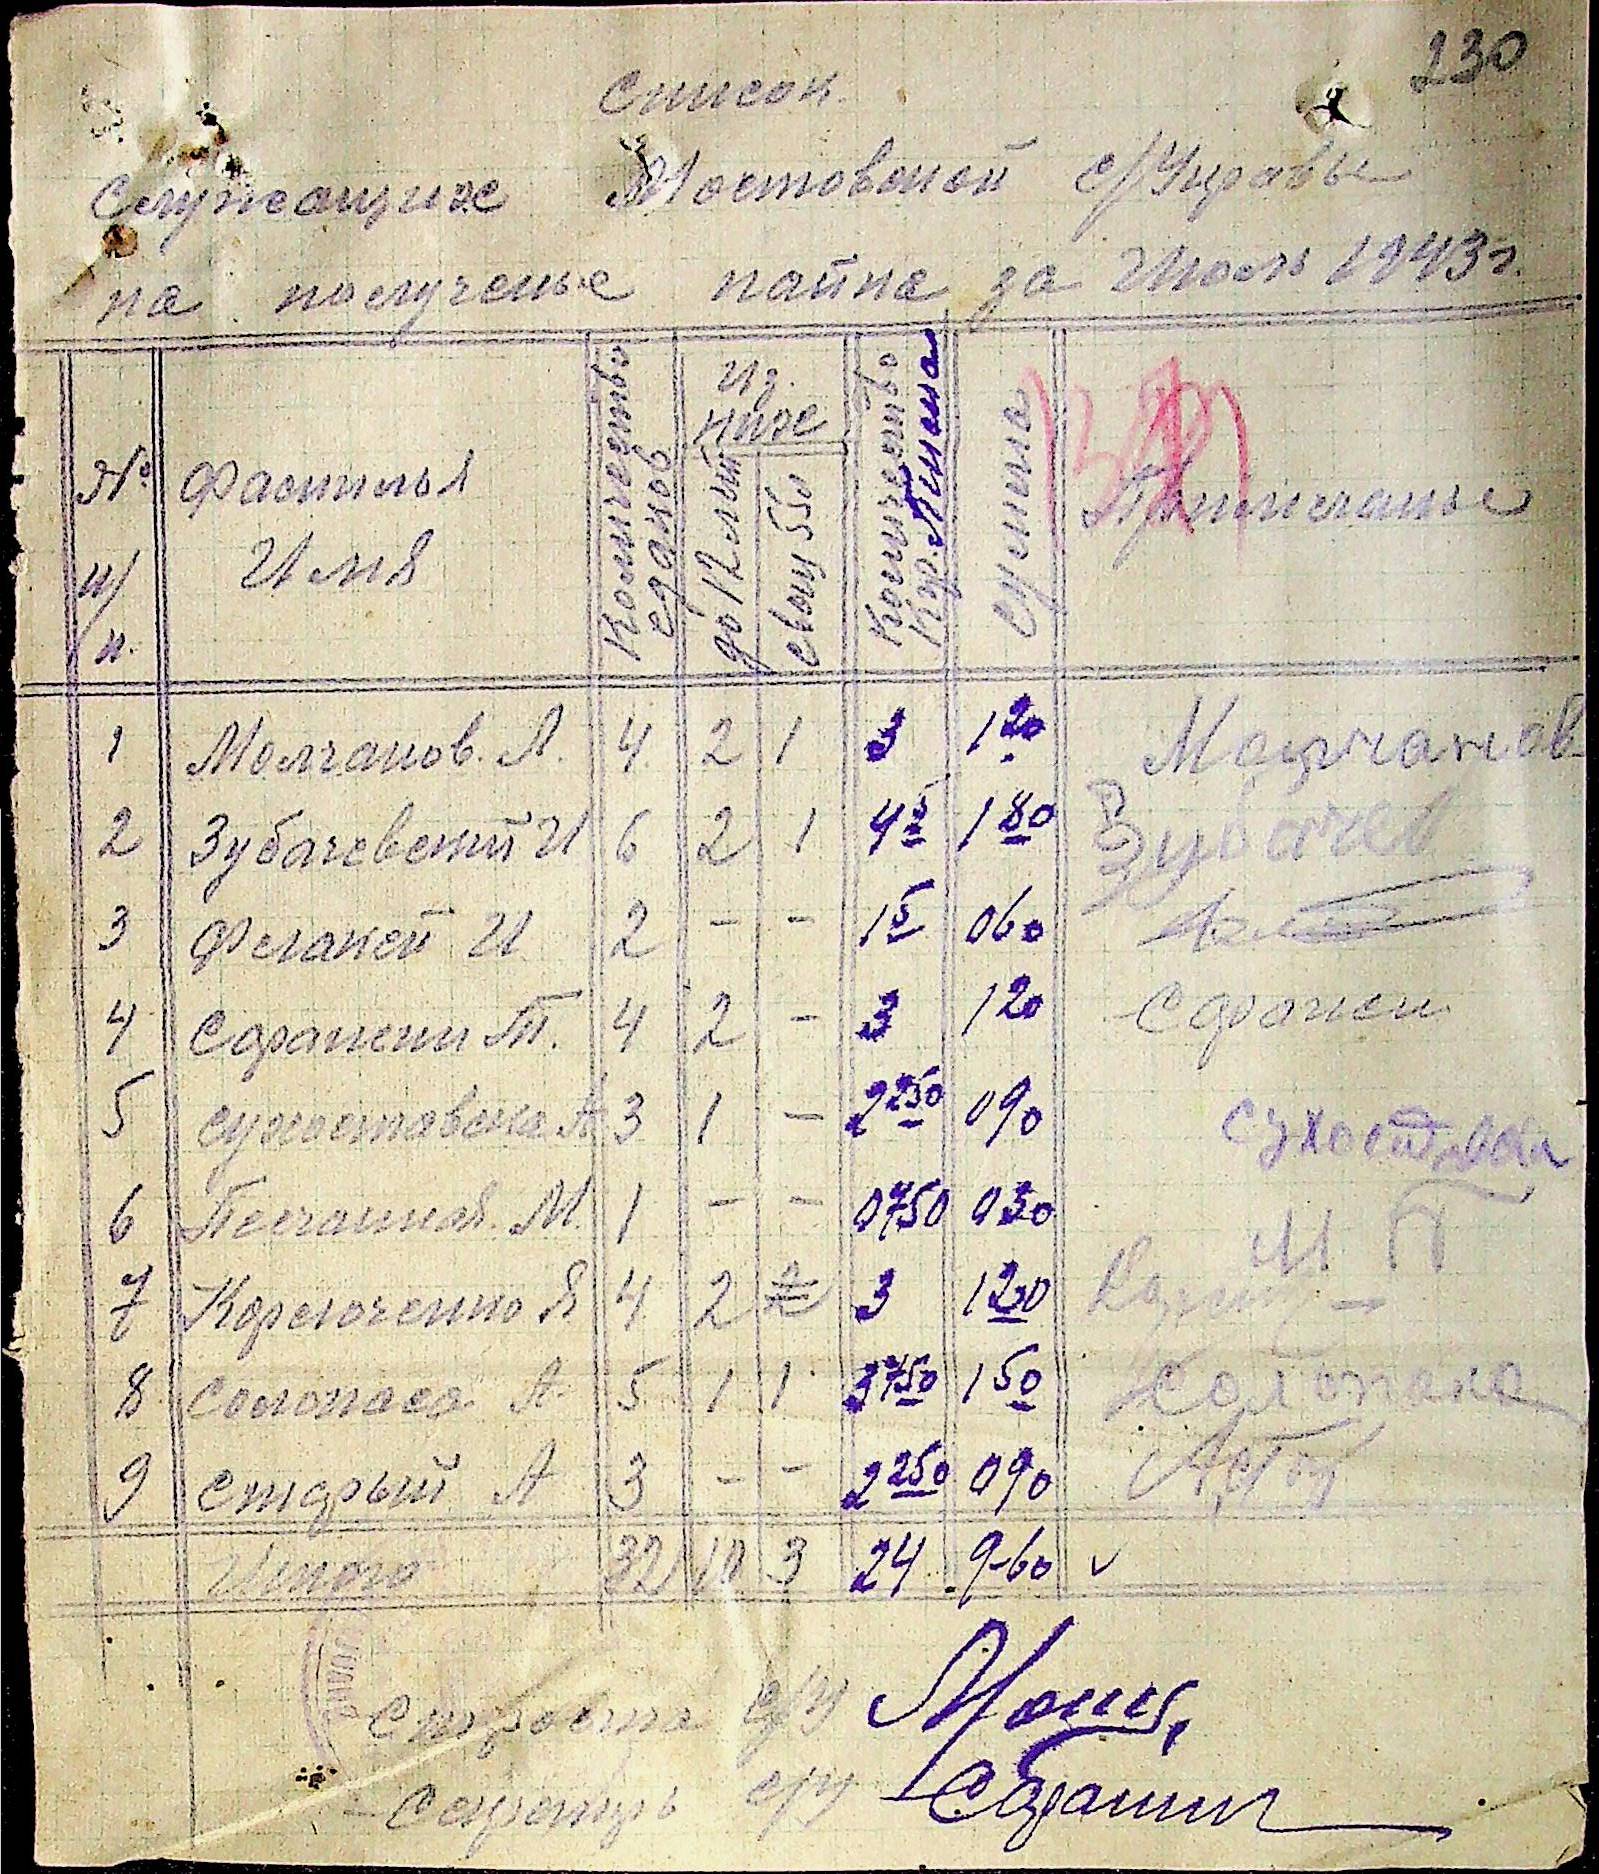 230
Список
служащих Мостовской с/Управы
на полученье пайка за Июль 1943 г.
№ п/п. Фамилья Имя Количество едоков Из них до 12 лет свыш 55 л Количество Кгр. Пшена сумма Примечанье
1 Молчанов. Л. 4 2 1 3 1 20 Молчанов
2 Зубачевский И 6 2 1 4 5 1 80 Зубачев
3 Фелакей И 2 - - 1 5 0 60
4 Сфранеии Т. 4 2 - 3 1 20 Сфранеи
5 сухоставска А 3 1 - 2 250 0 90
6 Песчанная. М. 1 - - 0 750 0 30 М П
7 Корсюченко Я 4 2 3 1 20
8 Солопаса А 5 1 1 3 750 1 50
9 Старый А 3 - - 2 250 0 90
Итого 32 10 3 24 9-60 ✓
Староста с/У
Секретарь с/У